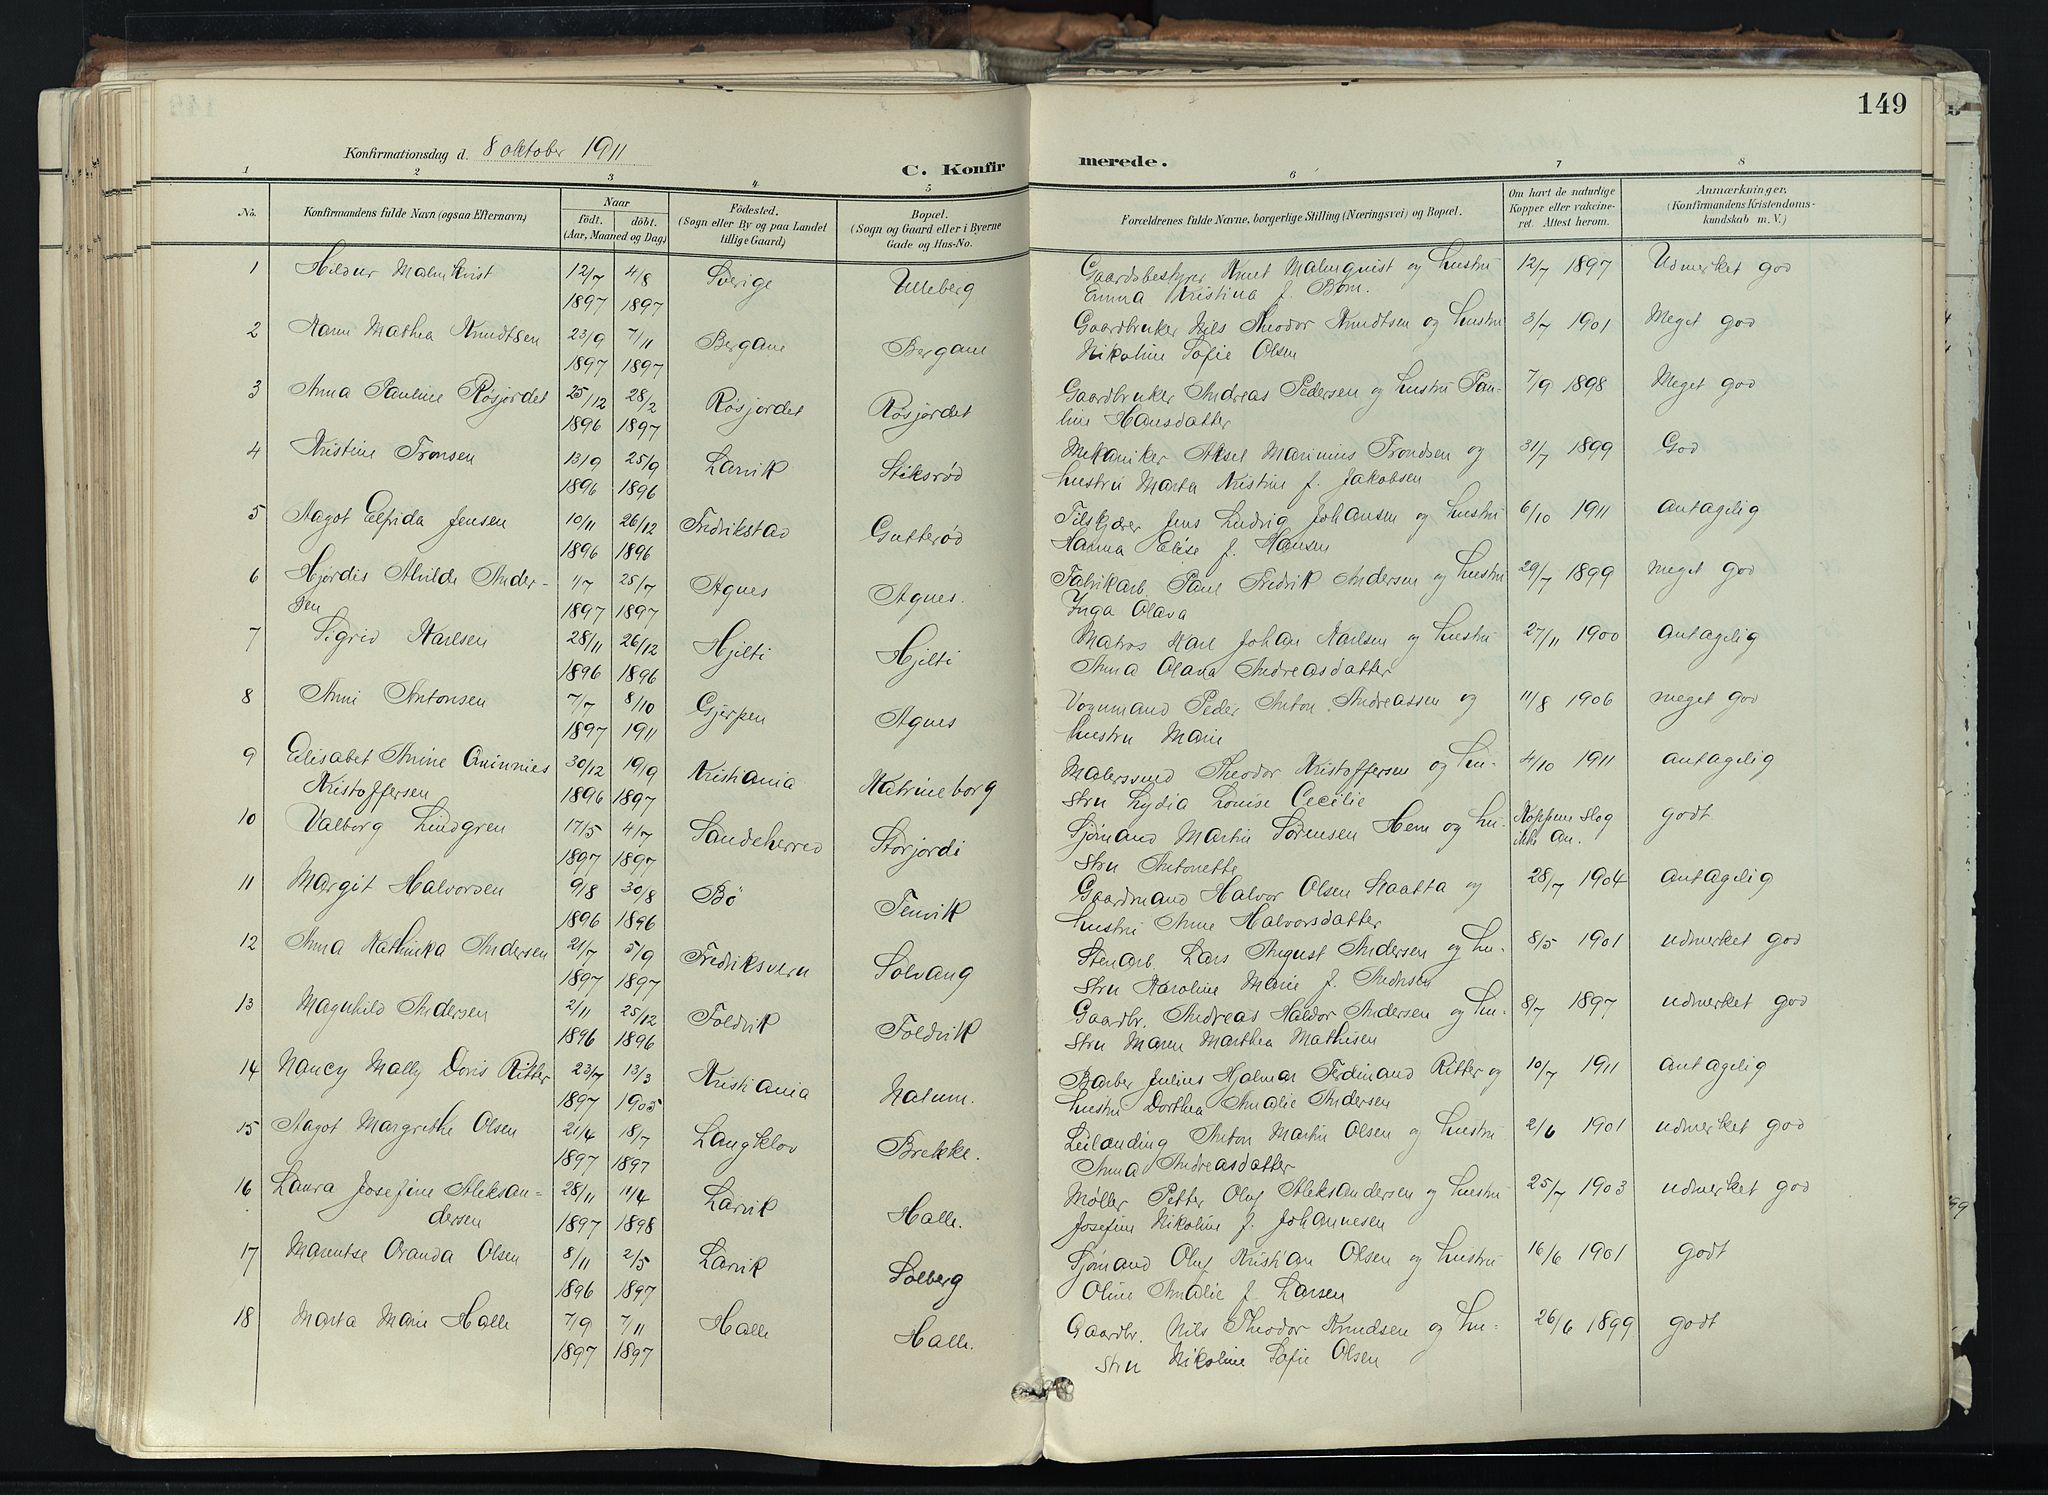 149
Konfirmationsdag d. 8 oktober 1911
C. Konfirmerede.
1 2 3 4 5 6 7 8
No. Konfirmandens fulde Navn (ogsaa Efternavn) Naar født. døbt. (Aar, Maaned og Dag) Födested. (Sogn eller By og paa Landet tillige Gaard) Bopæl. (Sogn og Gaard eller i Byerne Gade og Hus-No. Forældrenes fulde Navne, borgerlige Stilling (Næringsvei) og Bopæl. Om havt de naturlige Kopper eller vakcineret. Attest herom. Anmærkninger. (Konfirmandens Kristendomskundskab m. V.)
1 Hildur Malmkvist 12/7 1897 4/8 1897 Sverige Ulleberg Gaardsbestyrer Knut Malmquist og hustru 12/7 1897 Udmerket god
Emma Kristina f. Bom.
2 Mathea Knudtsen 23/9 1897 7/11 1897 Bergane Bergane Gaardbruker Nils Theodor Knudtsen og hustru 3/7 1901 Meget god
Nikoline Sofie Olsen
3 Anna Pauline Røsjordet 25/12 1896 28/2 1897 Røsjordet Røsjordet Gaardbruker Andreas Pedersen og hustru Pau- 7/9 1898 Meget god
line Hansdatter
4 Kristine Tronsen 13/9 1896 25/9 1896 Larvik Stiksrød Mekaniker Aksel Marinius Trondsen og 31/7 1899 God
hustru Marta Kristine f. Jakobsen
5 Aagot Elfrida Jensen 10/11 1896 26/12 1896 Fredrikstad Gutterød Filskjærer Jens Ludvig Johansen og hustru 6/10 1911 antagelig
Hanna Elise f. Hansen
6 Hjørdis Alvilde Ander- 1/7 1897 25/7 1897 Agnes Agnes. Fabrikarb. Paul Fredrik Andersen og hustru 29/7 1899 meget god
sen Inga Olava
7 Sigrid Karlsen 28/11 1896 26/12 1896 Hjelti Hjelti Matros Karl Johan Karlsen og hustru 27/11 1900 antagelig
Anna Olava Andreasdatter
8 Anni Antonsen 7/7 1897 8/10 1911 Gjerpen Agnes Vognmand Peder Anton Andreassen og 11/8 1906 meget god
hustru Marie
9 Elisabet Anine Kristoffersen 30/12 1896 19/9 1897 Kristiania Katrineborg Malersvend Theodor Kristoffersen og hu- 4/10 1911 antagelig
stru Lydia Louise Cecilie
10 Valborg Lindgren 17/5 1897 4/7 1897 Sandeherred Storjordi Sjømand Martin Sørensen Hem og hu- Koppene slog ikke an. godt
stru Antonette
11 Margit Halvorsen 9/8 1896 30/8 1896 Bø Tenvik Gaardmand Halvor Olsen Kaatta og 28/7 1904 antagelig
hustru Anne Halvorsdatter
12 Anna Kathinka Andersen 21/7 1897 5/9 1897 Fredriksvern Solvang Stenarb. Lars August Andersen og hu- 8/5 1901 udmerket god
stru Karoline Marie f. Andersen
13 Magnhild Andersen 2/11 1896 25/12 1896 Foldvik Foldvik Gaardbr. Andreas Haldor Andersen og hu- 8/7 1897 udmerket god
stru Maren Marthea Mathisen
14 Nancy Mally Doris Ritter 23/7 1897 13/3 1905 Kristiania Nalum. Barber Julius Hjalmar Ferdinand Ritter og 10/7 1911 antagelig
hustru Dorthea Amalie Andersen
15 Aagot Margrethe Olsen 21/4 1897 18/7 1897 Langklov Brekke. Leilænding Anton Martin Olsen og hustru 2/6 1901 udmerket god
Anna Andreasdatter
16 Laura Josefine Aleksan- 28/11 1897 11/4 1898 Larvik Halle. Møller Petter Oluf Aleksandersen og hustru 25/7 1903 udmerket god
dersen Josefine Nikoline f. Johannesen
17 Marentse Oranda Olsen 8/11 1896 2/5 1897 Larvik Solberg Sjømand Oluf Kristian Olsen og hustru 16/6 1901 godt
Oline Amalie f. Larsen
18 Marta Marie Halle 7/9 1897 7/11 1897 Halle Halle. Gaardbr. Nils Theodor Knudsen og hu- 26/6 1899 godt
stru Nikoline Sofie Olsen